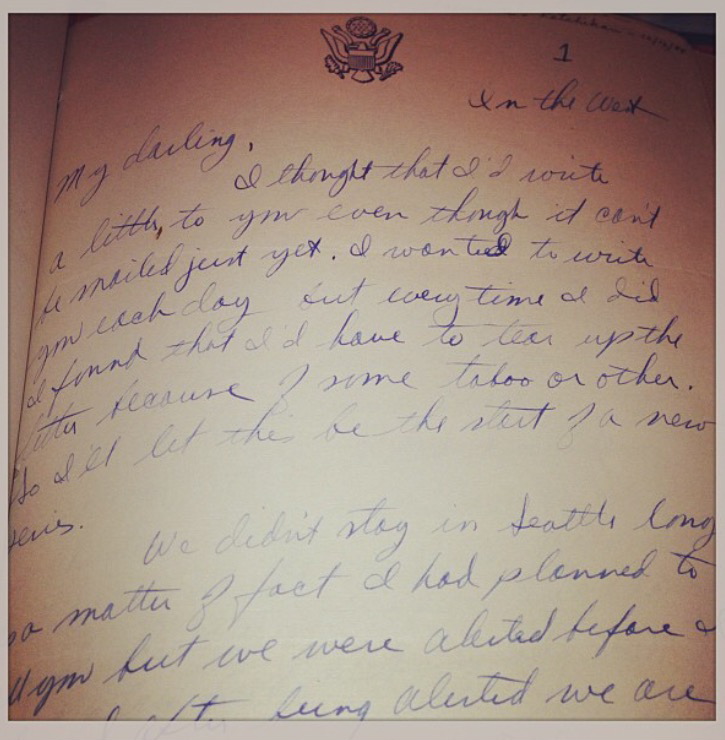 1
In the West
My darling,
I thought that I'd write
a little, to you even though it can't
be mailed just yet. I wanted to write
you each day but every time I did
I found that I'd have to tear up the
letter because of some taboo or other.
So I'll let this be the start of a new
series.
We didn't stay in Seattle long
so matter of fact I had planned to
you but we were alerted before I
after being alerted we are